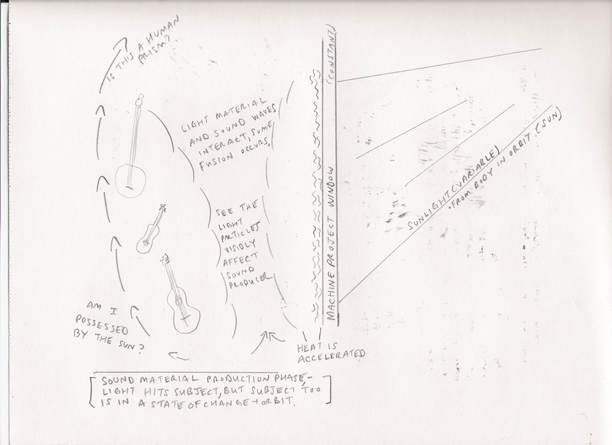 IS THIS A HUMAN
PRISM?
LIGHT MATERIAL
AND SOUND WAVES
INTERACT, SOME
FUSION OCCURS,
SEE THE
LIGHT
PARTICLES
VISIBLY
AFFECT
SOUND
PRODUCER
AM I
POSSESSED
BY THE SUN?
MACHINE PROJECT WINDOW (CONSTANT)
SUNLIGHT (VARIABLE)
FROM BODY IN ORBIT (SUN)
HEAT IS
ACCELERATED
SOUND MATERIAL PRODUCTION PHASE-
LIGHT HITS SUBJECT, BUT SUBJECT TOO
IS IN A STATE OF CHANGE + ORBIT.